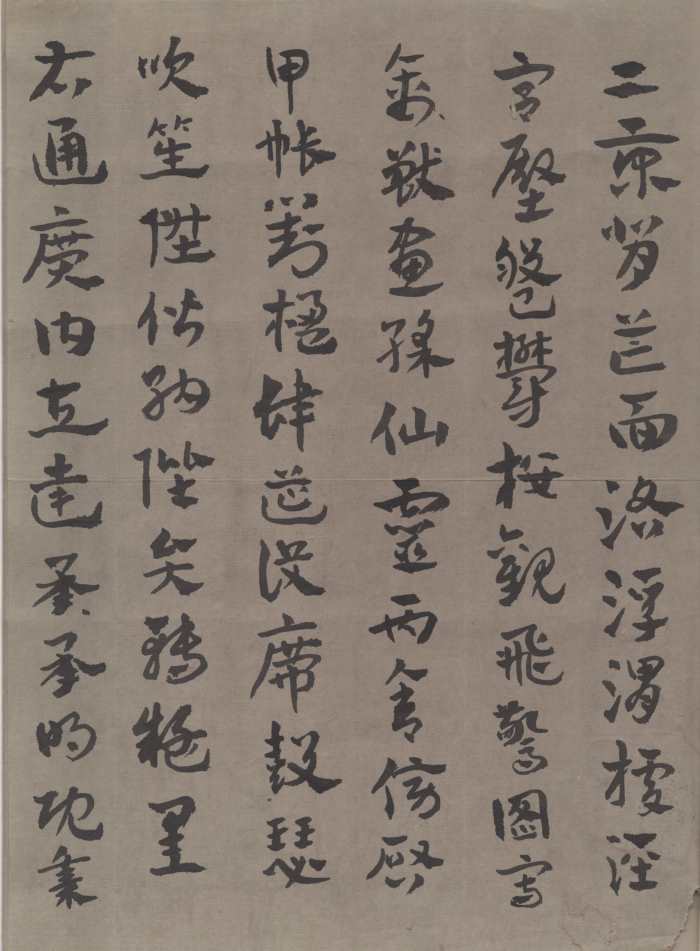 二京背芒面洛浮渭據涇
宮壂盤鬱樓觀飛驚圖寫
禽獸畫綵仙靈丙舍傍啓
甲帳對楹肆筵設席鼓瑟
吹笙陞階納陛弁轉疑星
右通廣內左達承承明既集